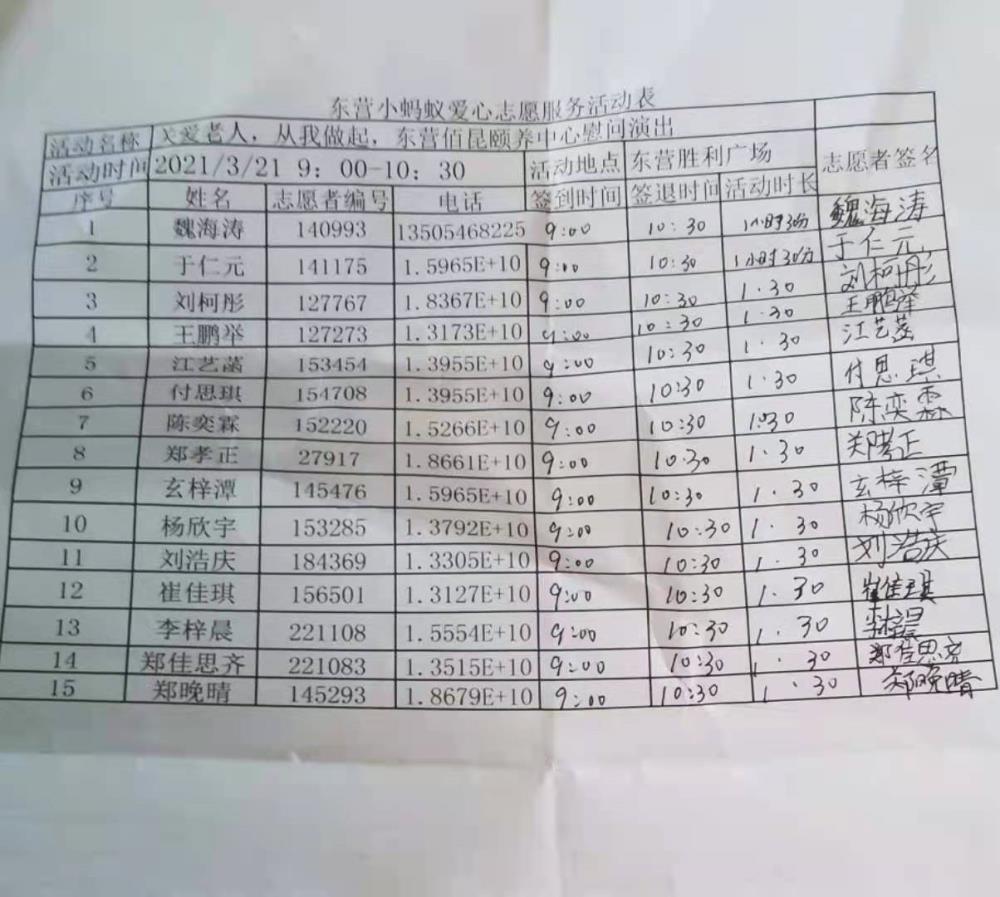 东营小蚂蚁爱心志愿服务活动表
活动名称 关爱老人，从我做起，东营佰昆颐养中心慰问演出
活动时间 2021/3/21 9：00-10：30 活动地点 东营胜利广场 志愿者签名
序号 姓名 志愿者编号 电话 签到时间 签退时间 活动时长
1 魏海涛 140993 13505468225 9:00 10:30 1小时30份 魏海涛
2 于仁元 141175 1.5965E+10 9:00 10:30 1小时30分 于仁元
3 刘柯彤 127767 1.8367E+10 9:00 10:30 1.30 刘柯彤
4 王鹏举 127273 1.3173E+10 9:00 10:30 1.30 王鹏举
5 江艺菡 153454 1.3955E+10 9:00 10:30 1.30 江艺菡
6 付思琪 154708 1.3955E+10 9:00 10:30 1.30 付思琪
7 陈奕霖 152220 1.5266E+10 9:00 10:30 1:30 陈奕霖
8 郑孝正 27917 1.8661E+10 9:00 10:30 1.30 郑孝正
9 玄梓潭 145476 1.5965E+10 9:00 10:30 1.30 玄梓潭
10 杨欣宇 153285 1.3792E+10 9:00 10:30 1.30 杨欣宇
11 刘浩庆 184369 1.3305E+10 9:00 10:30 1.30 刘浩庆
12 崔佳琪 156501 1.3127E+10 9:00 10:30 1.30 崔佳琪
13 李梓晨 221108 1.5554E+10 9:00 10:30 1.30 李梓晨
14 郑佳思齐 221083 1.3515E+10 9:00 10:30 1.30 郑佳思齐
15 郑晚晴 145293 1.8679E+10 9:00 10:30 1.30 郑晚晴